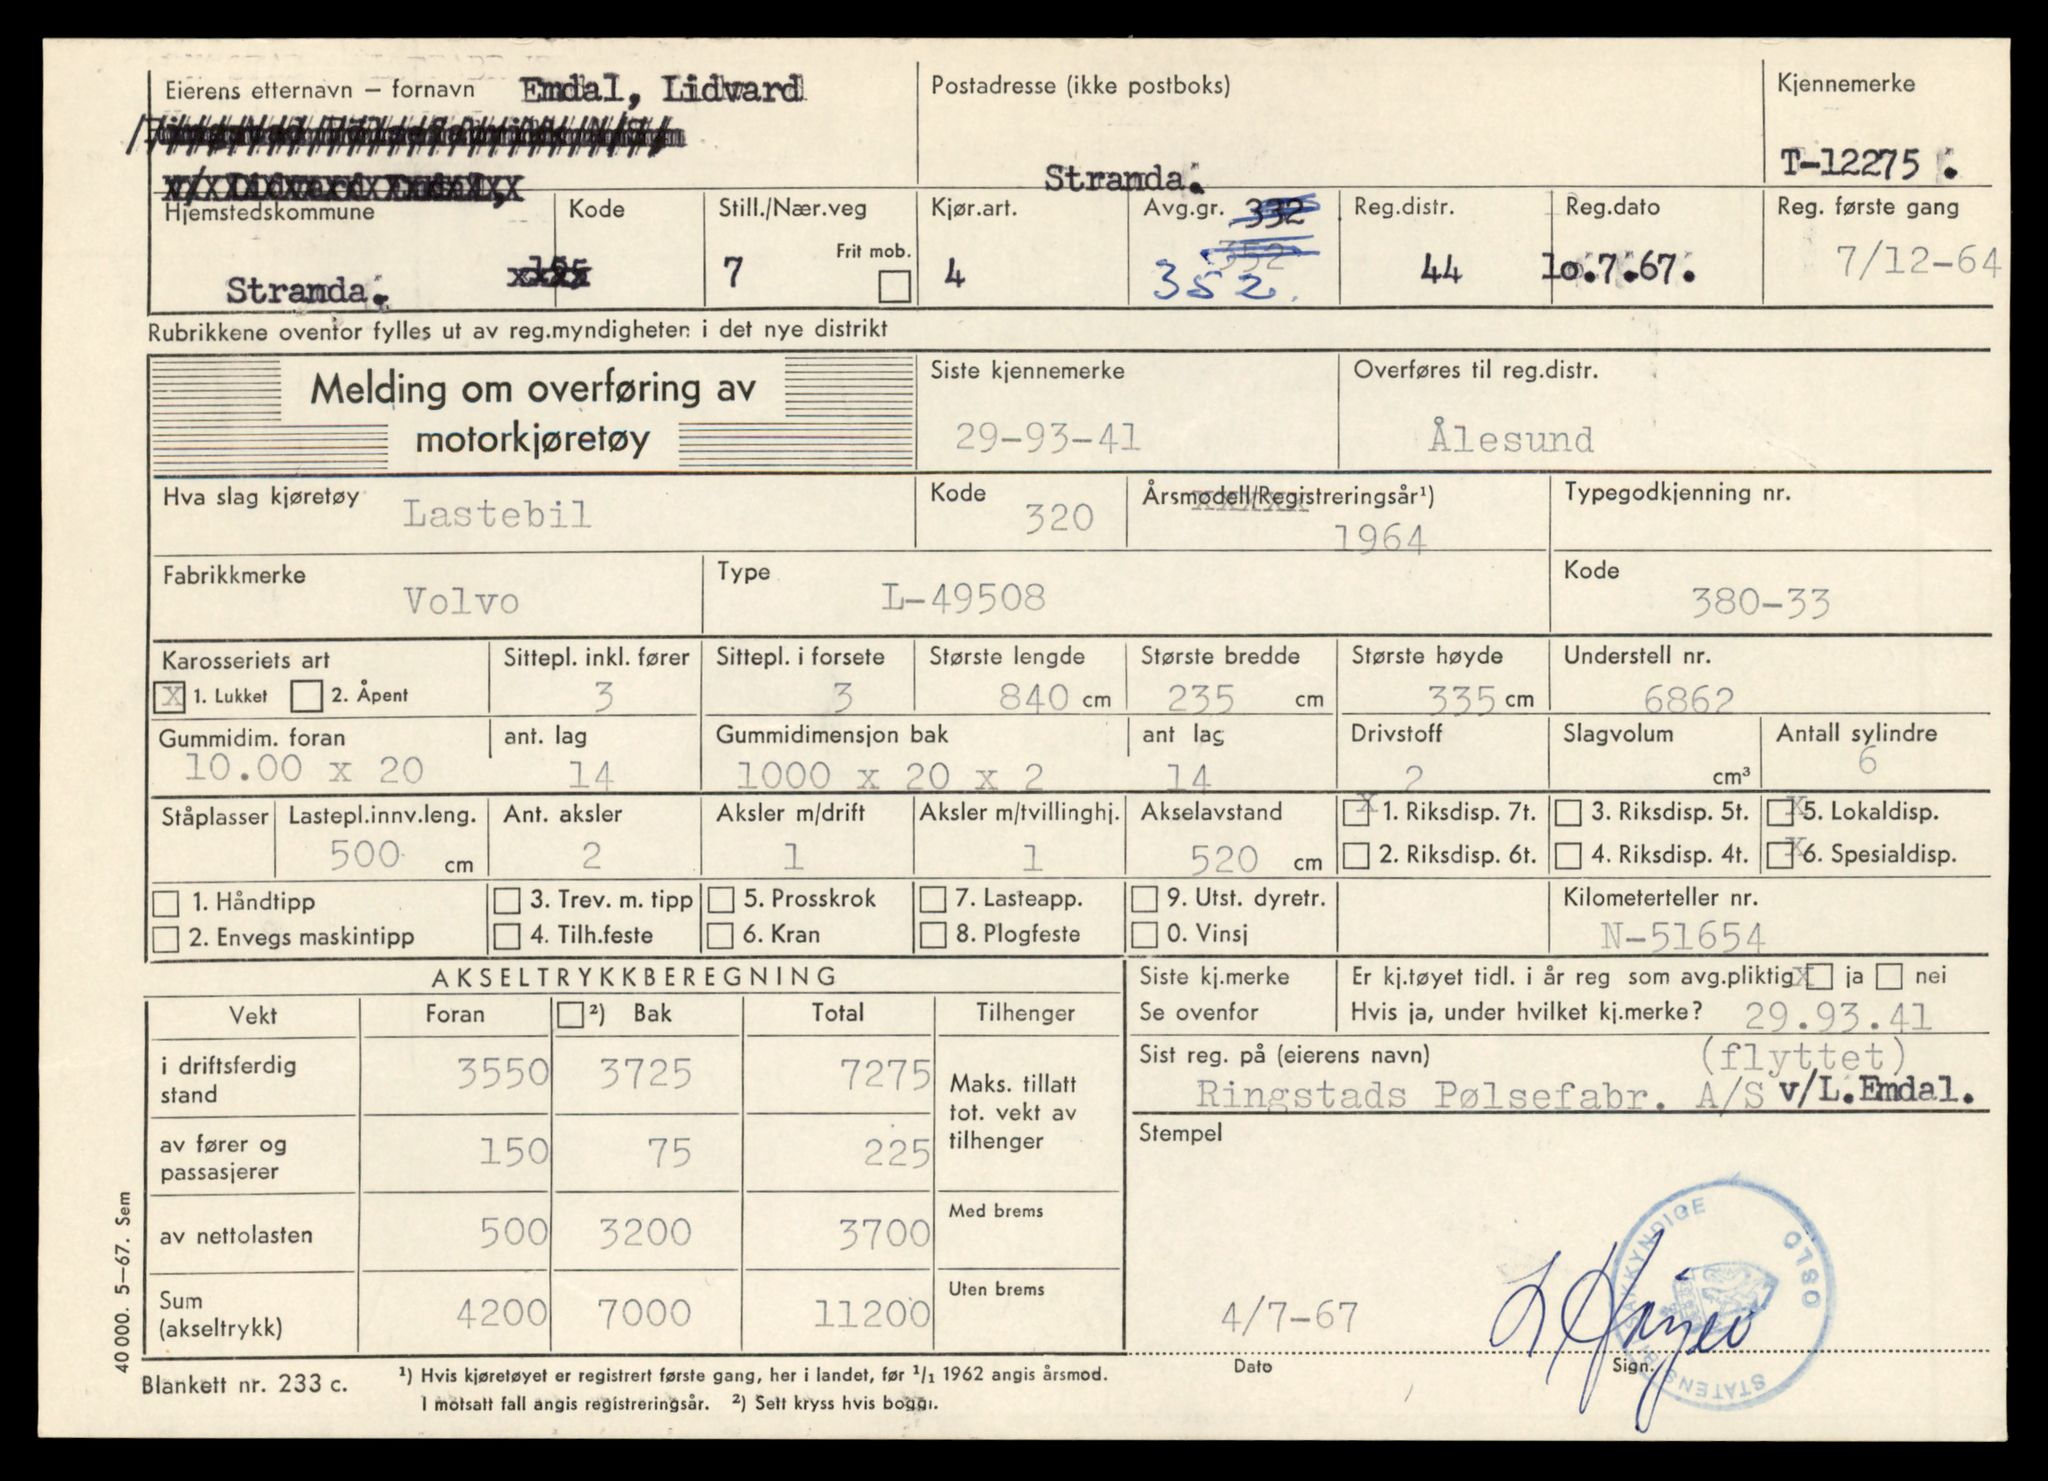 Eierens etternavn – fornavn Emdal, Lidvard
Postadresse (ikke postboks)
Stranda.
Kjennemerke
T-12275 .
Hjemstedskommune
Stranda.
Kode
Still./Nær.veg
7
Frit mob.
Kjør.art.
4
Avg.gr. 332
352
352.
Reg.distr.
44
Reg.dato
lo.7.67.
Reg. første gang
7/12-64
Rubrikkene ovenfor fylles ut av reg.myndigheten i det nye distrikt
Melding om overføring av
motorkjøretøy
Siste kjennemerke
29-93-41
Overføres til reg.distr.
Ålesund
Hva slag kjøretøy
Lastebil
Kode
320
Årsmodell/Registreringsår¹)
1964
Typegodkjenning nr.
Fabrikkmerke
Volvo
Type
L-49508
Kode
380-33
Karosseriets art
X 1. Lukket 2. Åpent
Sittepl. inkl. fører
3
Sittepl. i forsete
3
Største lengde
840 cm
Største bredde
235 cm
Største høyde
335 cm
Understell nr.
6862
Gummidim. foran
10.00 x 20
ant. lag
14
Gummidimensjon bak
1000 x 20 x 2
ant lag
14
Drivstoff
2
Slagvolum
cm³
Antall sylindre
6
Ståplasser
Lastepl.innv.leng.
500 cm
Ant. aksler
2
Aksler m/drift
1
Aksler m/tvillinghj.
1
Akselavstand
520 cm
X 1. Riksdisp. 7t.
2. Riksdisp. 6t.
3. Riksdisp. 5t.
4. Riksdisp. 4t.
X 5. Lokaldisp.
X 6. Spesialdisp.
1. Håndtipp
2. Envegs maskintipp
3. Trev. m. tipp
4. Tilh.feste
5. Prosskrok
6. Kran
7. Lasteapp.
8. Plogfeste
9. Utst. dyretr.
0. Vinsj
Kilometerteller nr.
N-51654
AKSELTRYKKBEREGNING
Vekt Foran ²) Bak Total Tilhenger
i driftsferdig
stand
3550 3725 7275
av fører og
passasjerer
150 75 225
av nettolasten
500 3200 3700
Sum
(akseltrykk)
4200 7000 11200
Maks. tillatt
tot. vekt av
tilhenger
Med brems
Uten brems
Siste kj.merke
Se ovenfor
Er kj.tøyet tidl. i år reg som avg.pliktig X ja nei
Hvis ja, under hvilket kj.merke? 29.93.41
Sist reg. på (eierens navn) (flyttet)
Ringstads Pølsefabr. A/S v/L.Emdal.
Stempel
STATENS BILSAKKYNDIGE OSLO
4/7-67
Dato
Sign.
40000. 5–67. Sem
Blankett nr. 233 c.
¹) Hvis kjøretøyet er registrert første gang, her i landet, før ¹/₁ 1962 angis årsmod.
I motsatt fall angis registreringsår. ²) Sett kryss hvis boggi.